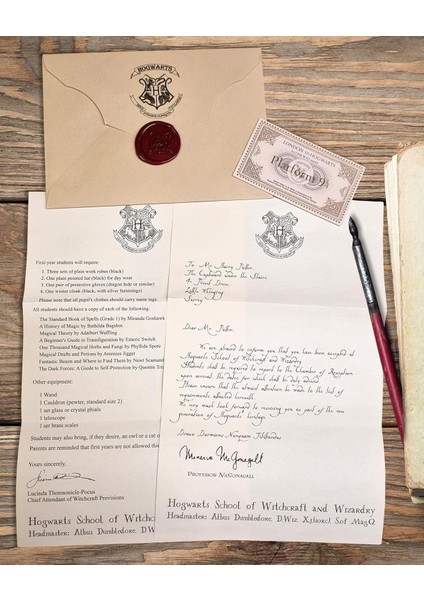 HOGWARTS
LONDON to HOGWARTS
Platform 9¾
First-year students will require:
1. Three sets of plain work robes (black)
2. One plain pointed hat (black) for day wear
3. One pair of protective gloves (dragon hide or similar)
4. One winter cloak (black, with silver fastenings)
Please note that all pupil's clothes should carry name tags.
All students should have a copy of each of the following:
The Standard Book of Spells (Grade 1) by Miranda Goshawk
A History of Magic by Bathilda Bagshot
Magical Theory by Adalbert Waffling
A Beginner's Guide to Transfiguration by Emeric Switch
One Thousand Magical Herbs and Fungi by Phyllida Spore
Magical Drafts and Potions by Arsenius Jigger
Fantastic Beasts and Where to Find Them by Newt Scamand
The Dark Forces: A Guide to Self-Protection by Quentin Tri
Other equipment:
1 Wand
1 Cauldron (pewter, standard size 2)
1 set glass or crystal phials
1 telescope
1 set brass scales
Students may also bring, if they desire, an owl or a cat o
Parents are reminded that first years are not allowed thi
Yours sincerely,
Lucinda Thomsonicle-Pocus
Chief Attendant of Witchcraft Provisions
Hogwarts School of Witchc
Headmaster: Albus Dumbledore, D.W
To Mr. Harry Potter
The Cupboard under the Stairs
4. Privet Drive
Little Whinging
Surrey
Dear Mr. Potter
We are pleased to inform you that you have been accepted at
Hogwarts School of Witchcraft and Wizardry.
Students shall be required to report to the Chamber of Reception
upon arrival, the dates for which shall be duly advised
Please ensure that the utmost attention be made to the list of
requirements attached herewith.
We very much look forward to receiving you as part of the new
generation of Hogwarts' heritage.
Draco Dormiens Nunquam Titillandus
Minerva McGonagall
Professor McGonagall
Hogwarts School of Witchcraft and Wizardry
Headmaster: Albus Dumbledore, D.Wiz, X.J.(sorc.), S.of Mag.Q